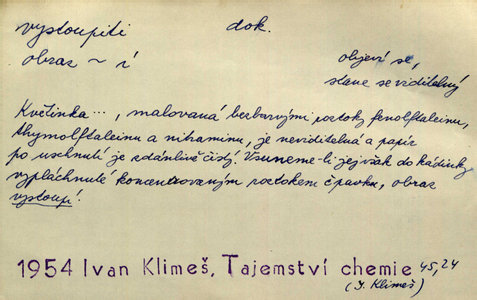 vystoupiti dok.
obraz ~ í objeví se,
stane se viditelný
Květinka ..., malovaná bezbarvými roztoky fenolftaleinu,
thymolftaleinu a nitraminu, je neviditelná a papír
po uschnutí je zdánlivě čistý. Vsuneme-li jej však do kádinky
vypláchnuté koncentrovaným roztokem čpavku, obraz
vystoupí!
1954 Ivan Klimeš, Tajemství chemie 45, 24
(I. Klimeš)